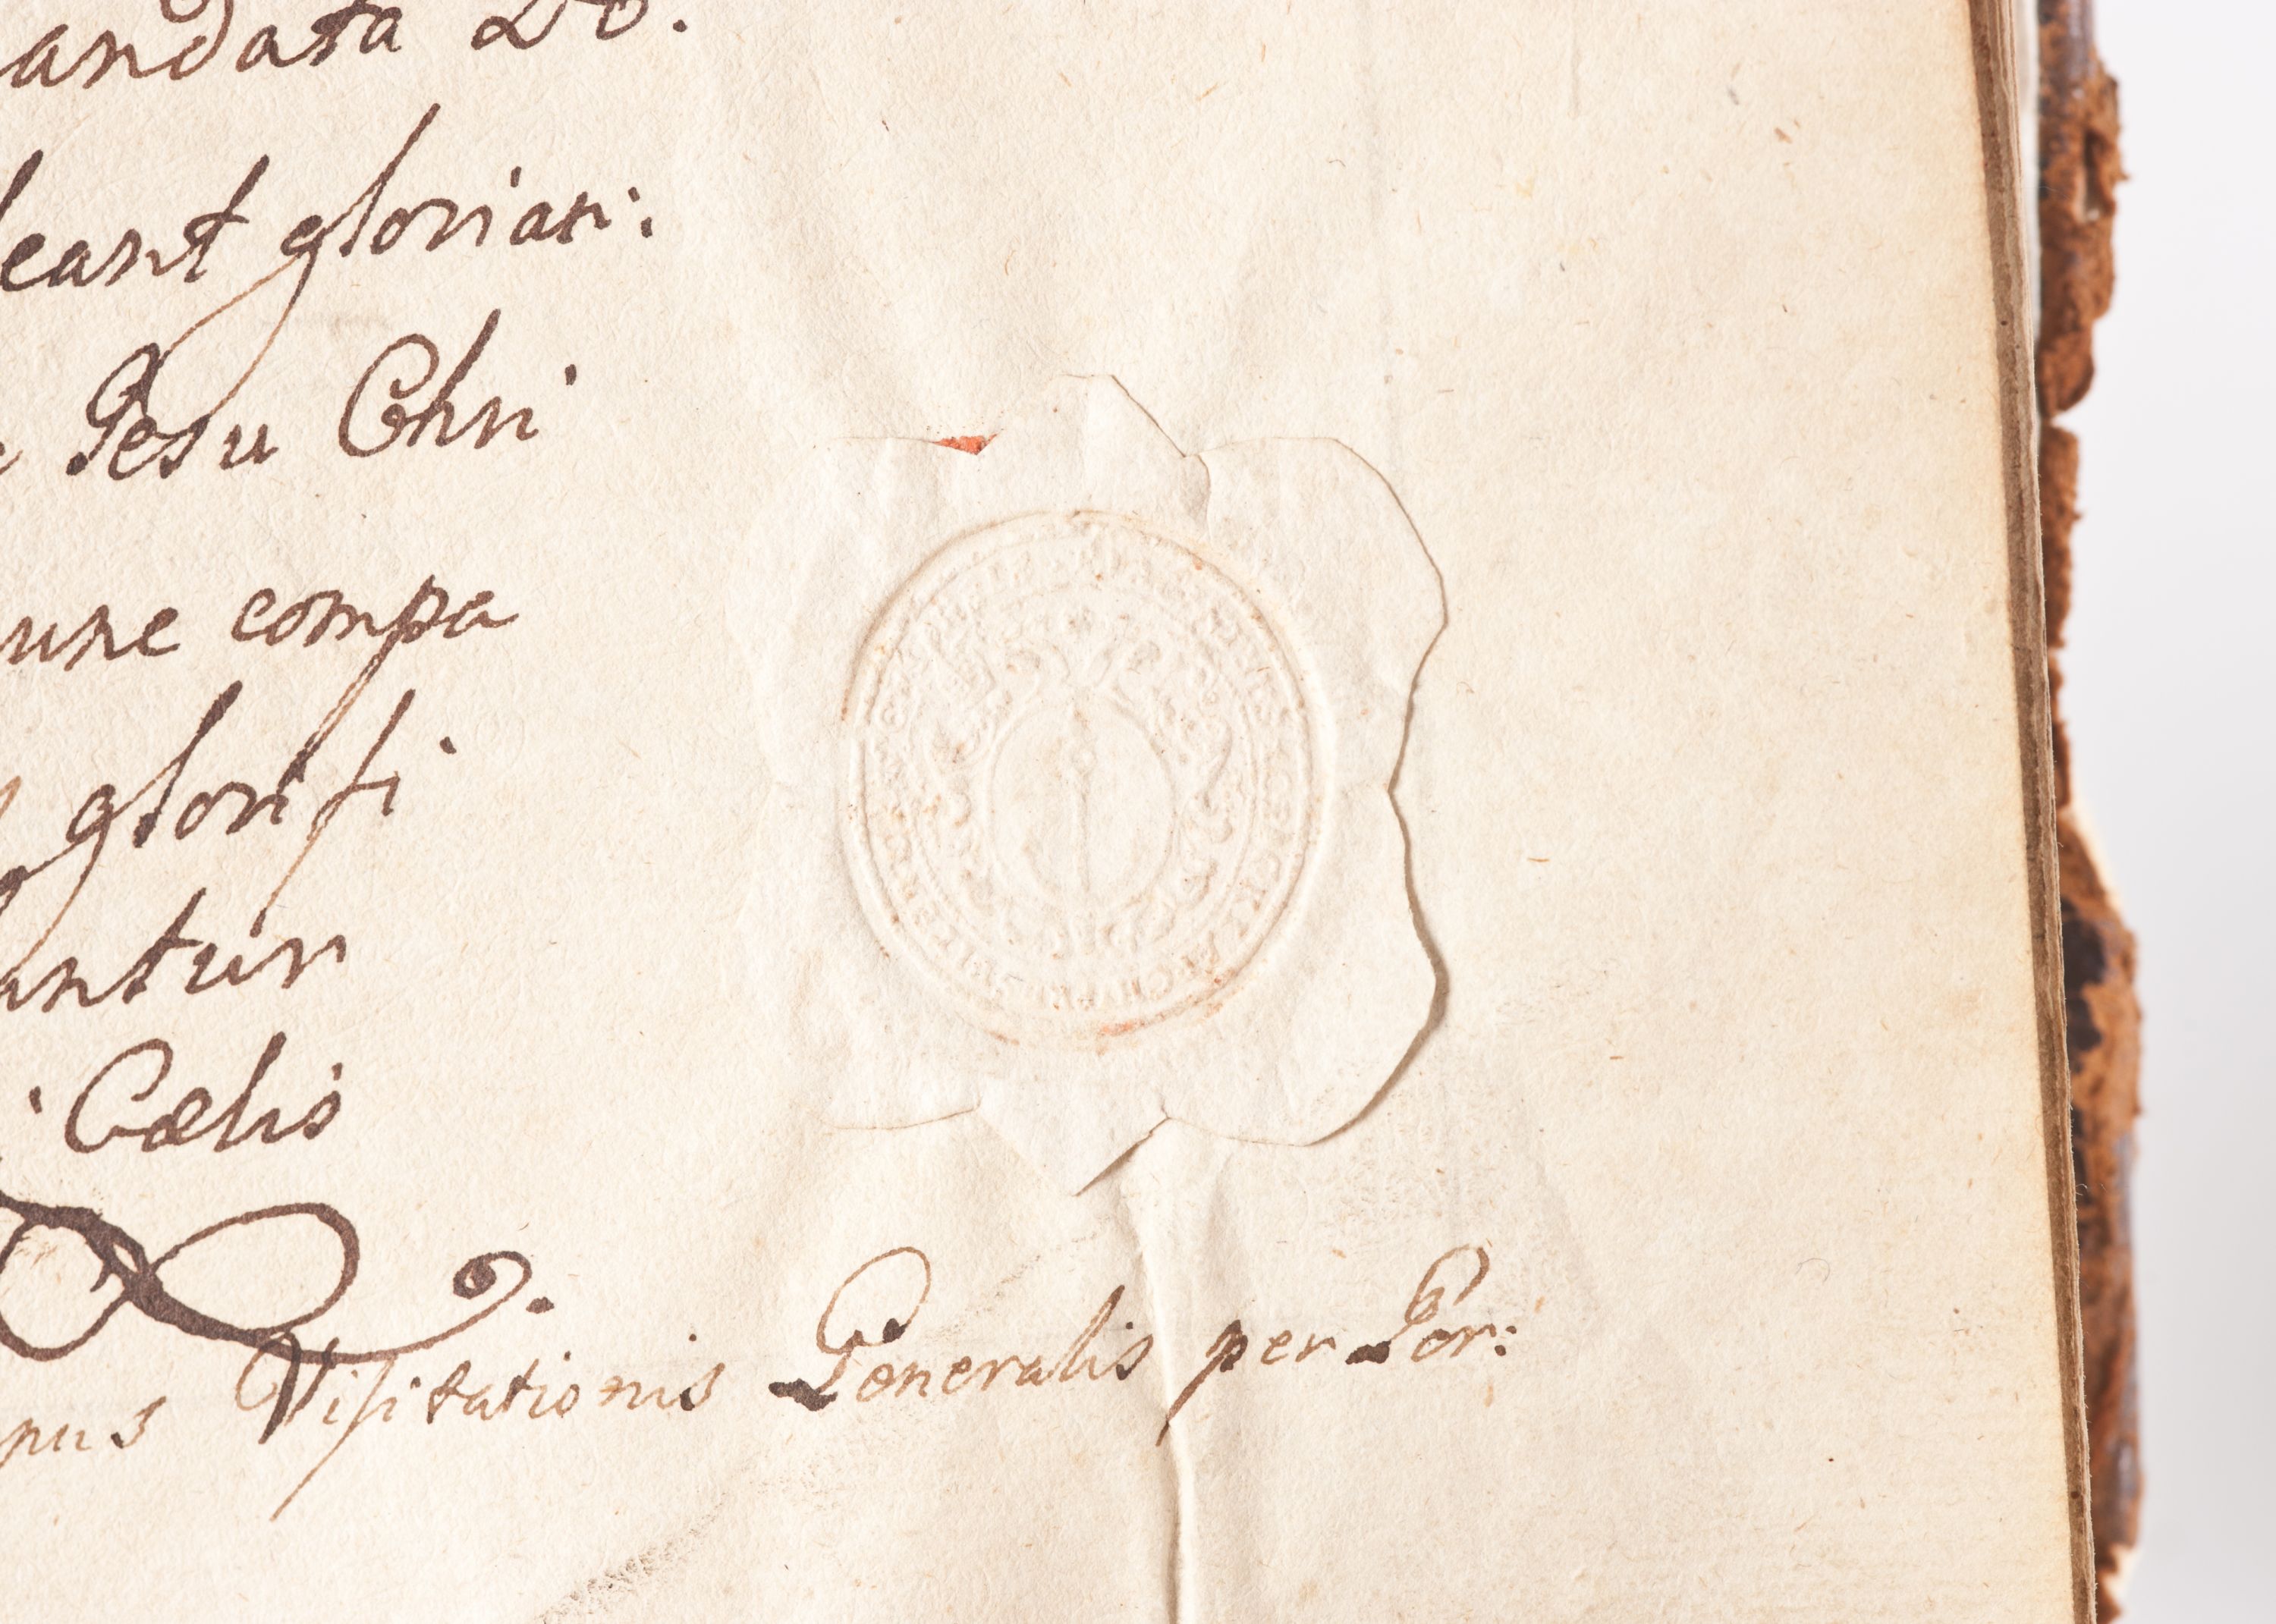 andata D͞o.
leant gloriari.
Jesu Chri
une compa
glorifi
antur
Cælis
pus Visitationis Generalis per Por: